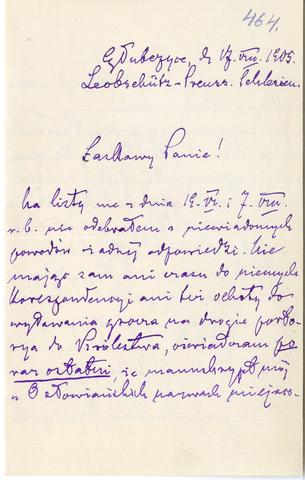 464.
Głubczyce, d. 17. VIII. 1905.
Leobschütz - Preuss. Schlesien.
Łaskawy Panie!
Na listy me z dnia 19. VI. i 7. VIII.
r. b. nie odebrałem z niewiadomych
powodów żadnej odpowiedzi. Nie
mając sam ani czasu do
korespondencyi ani też ochoty do
wydawania grosza na drogie porto-
rya do Królestwa, oświadczam po
raz ostatni, że manuskrypt mój
o Słowiańskich nazwach miejsco-